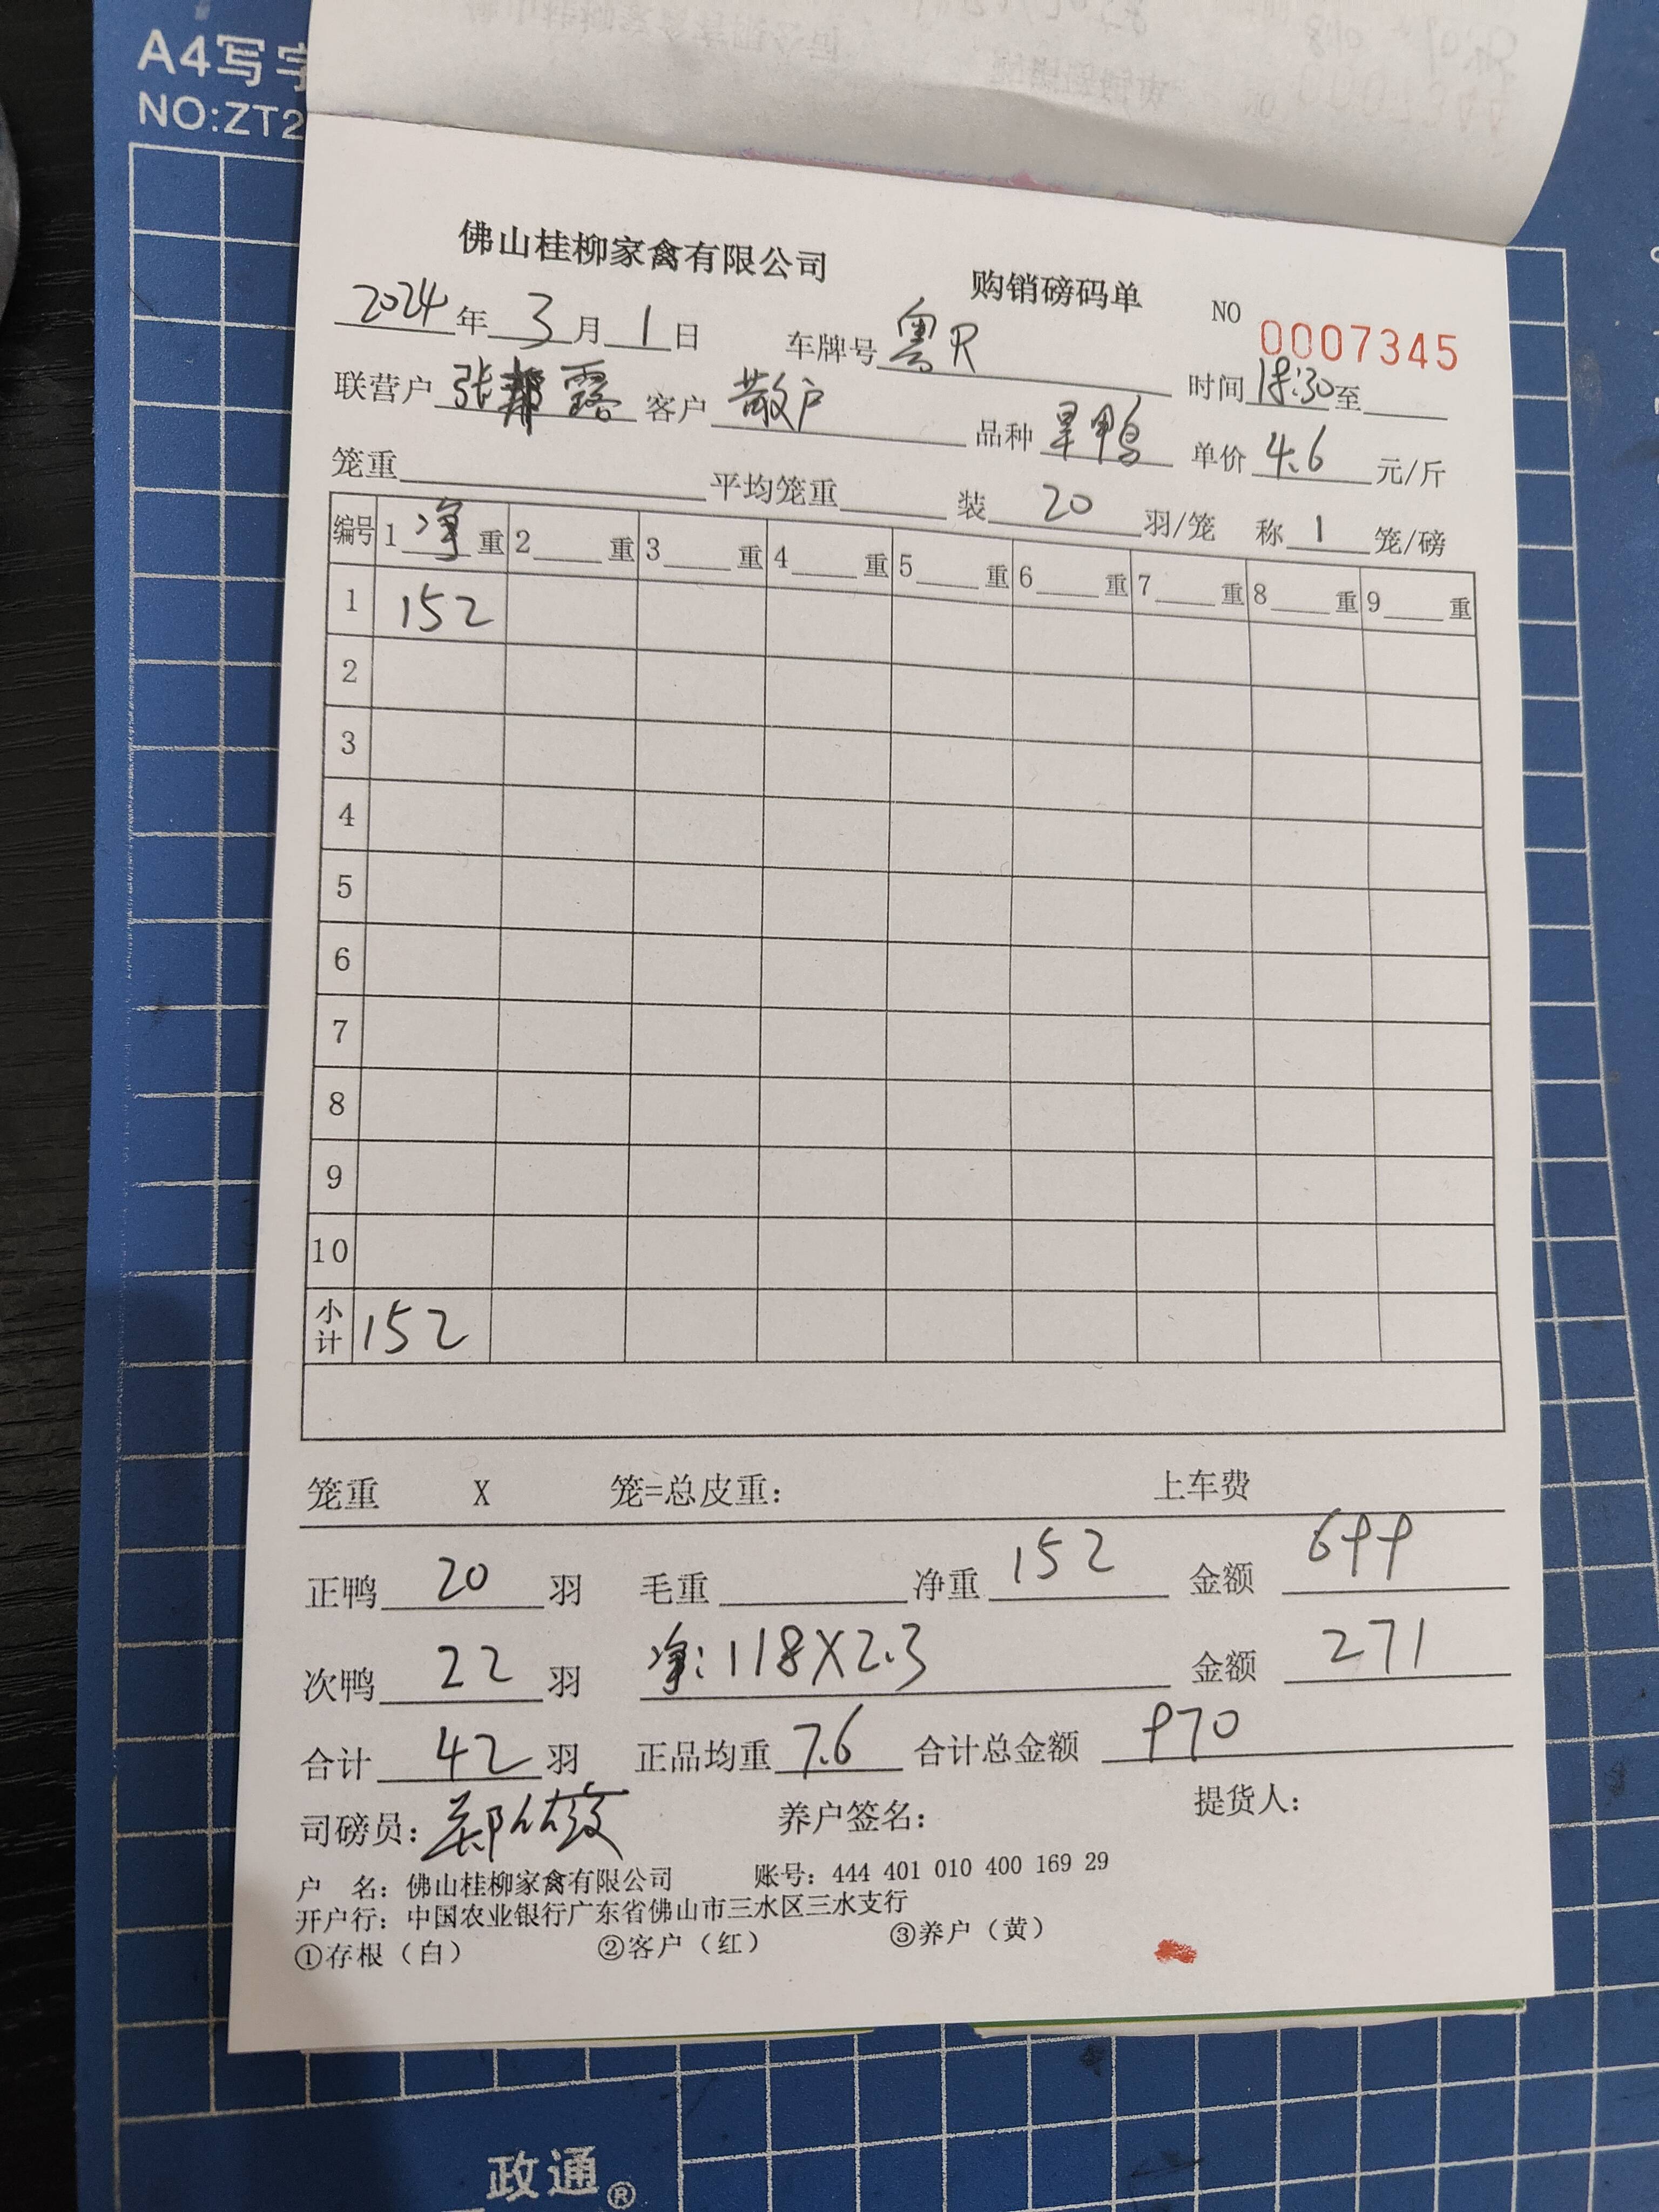 A4写字
NO:ZT2
佛山桂柳家禽有限公司 购销磅码单 NO 0007345
2024年3月1日 车牌号 粤R 时间 18:30 至
联营户 张 露 客户 散户 品种 旱鸭 单价 4.6 元/斤
笼重 平均笼重 装 20 羽/笼 称 1 笼/磅
编号 1 净 重 2 重 3 重 4 重 5 重 6 重 7 重 8 重 9 重
1 152
2
3
4
5
6
7
8
9
10
小计 152
笼重 X 笼=总皮重: 上车费
正鸭 20 羽 毛重 净重 152 金额 699
次鸭 22 羽 净:118X2.3 金额 271
合计 42 羽 正品均重 7.6 合计总金额 970
司磅员: 郑 养户签名: 提货人:
户 名: 佛山桂柳家禽有限公司 账号: 444 401 010 400 169 29
开户行: 中国农业银行广东省佛山市三水区三水支行
①存根（白） ②客户（红） ③养户（黄）
政通®